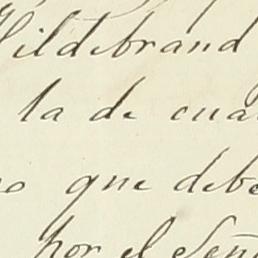 Hildebrand
la de cua
que debe
por el Señ